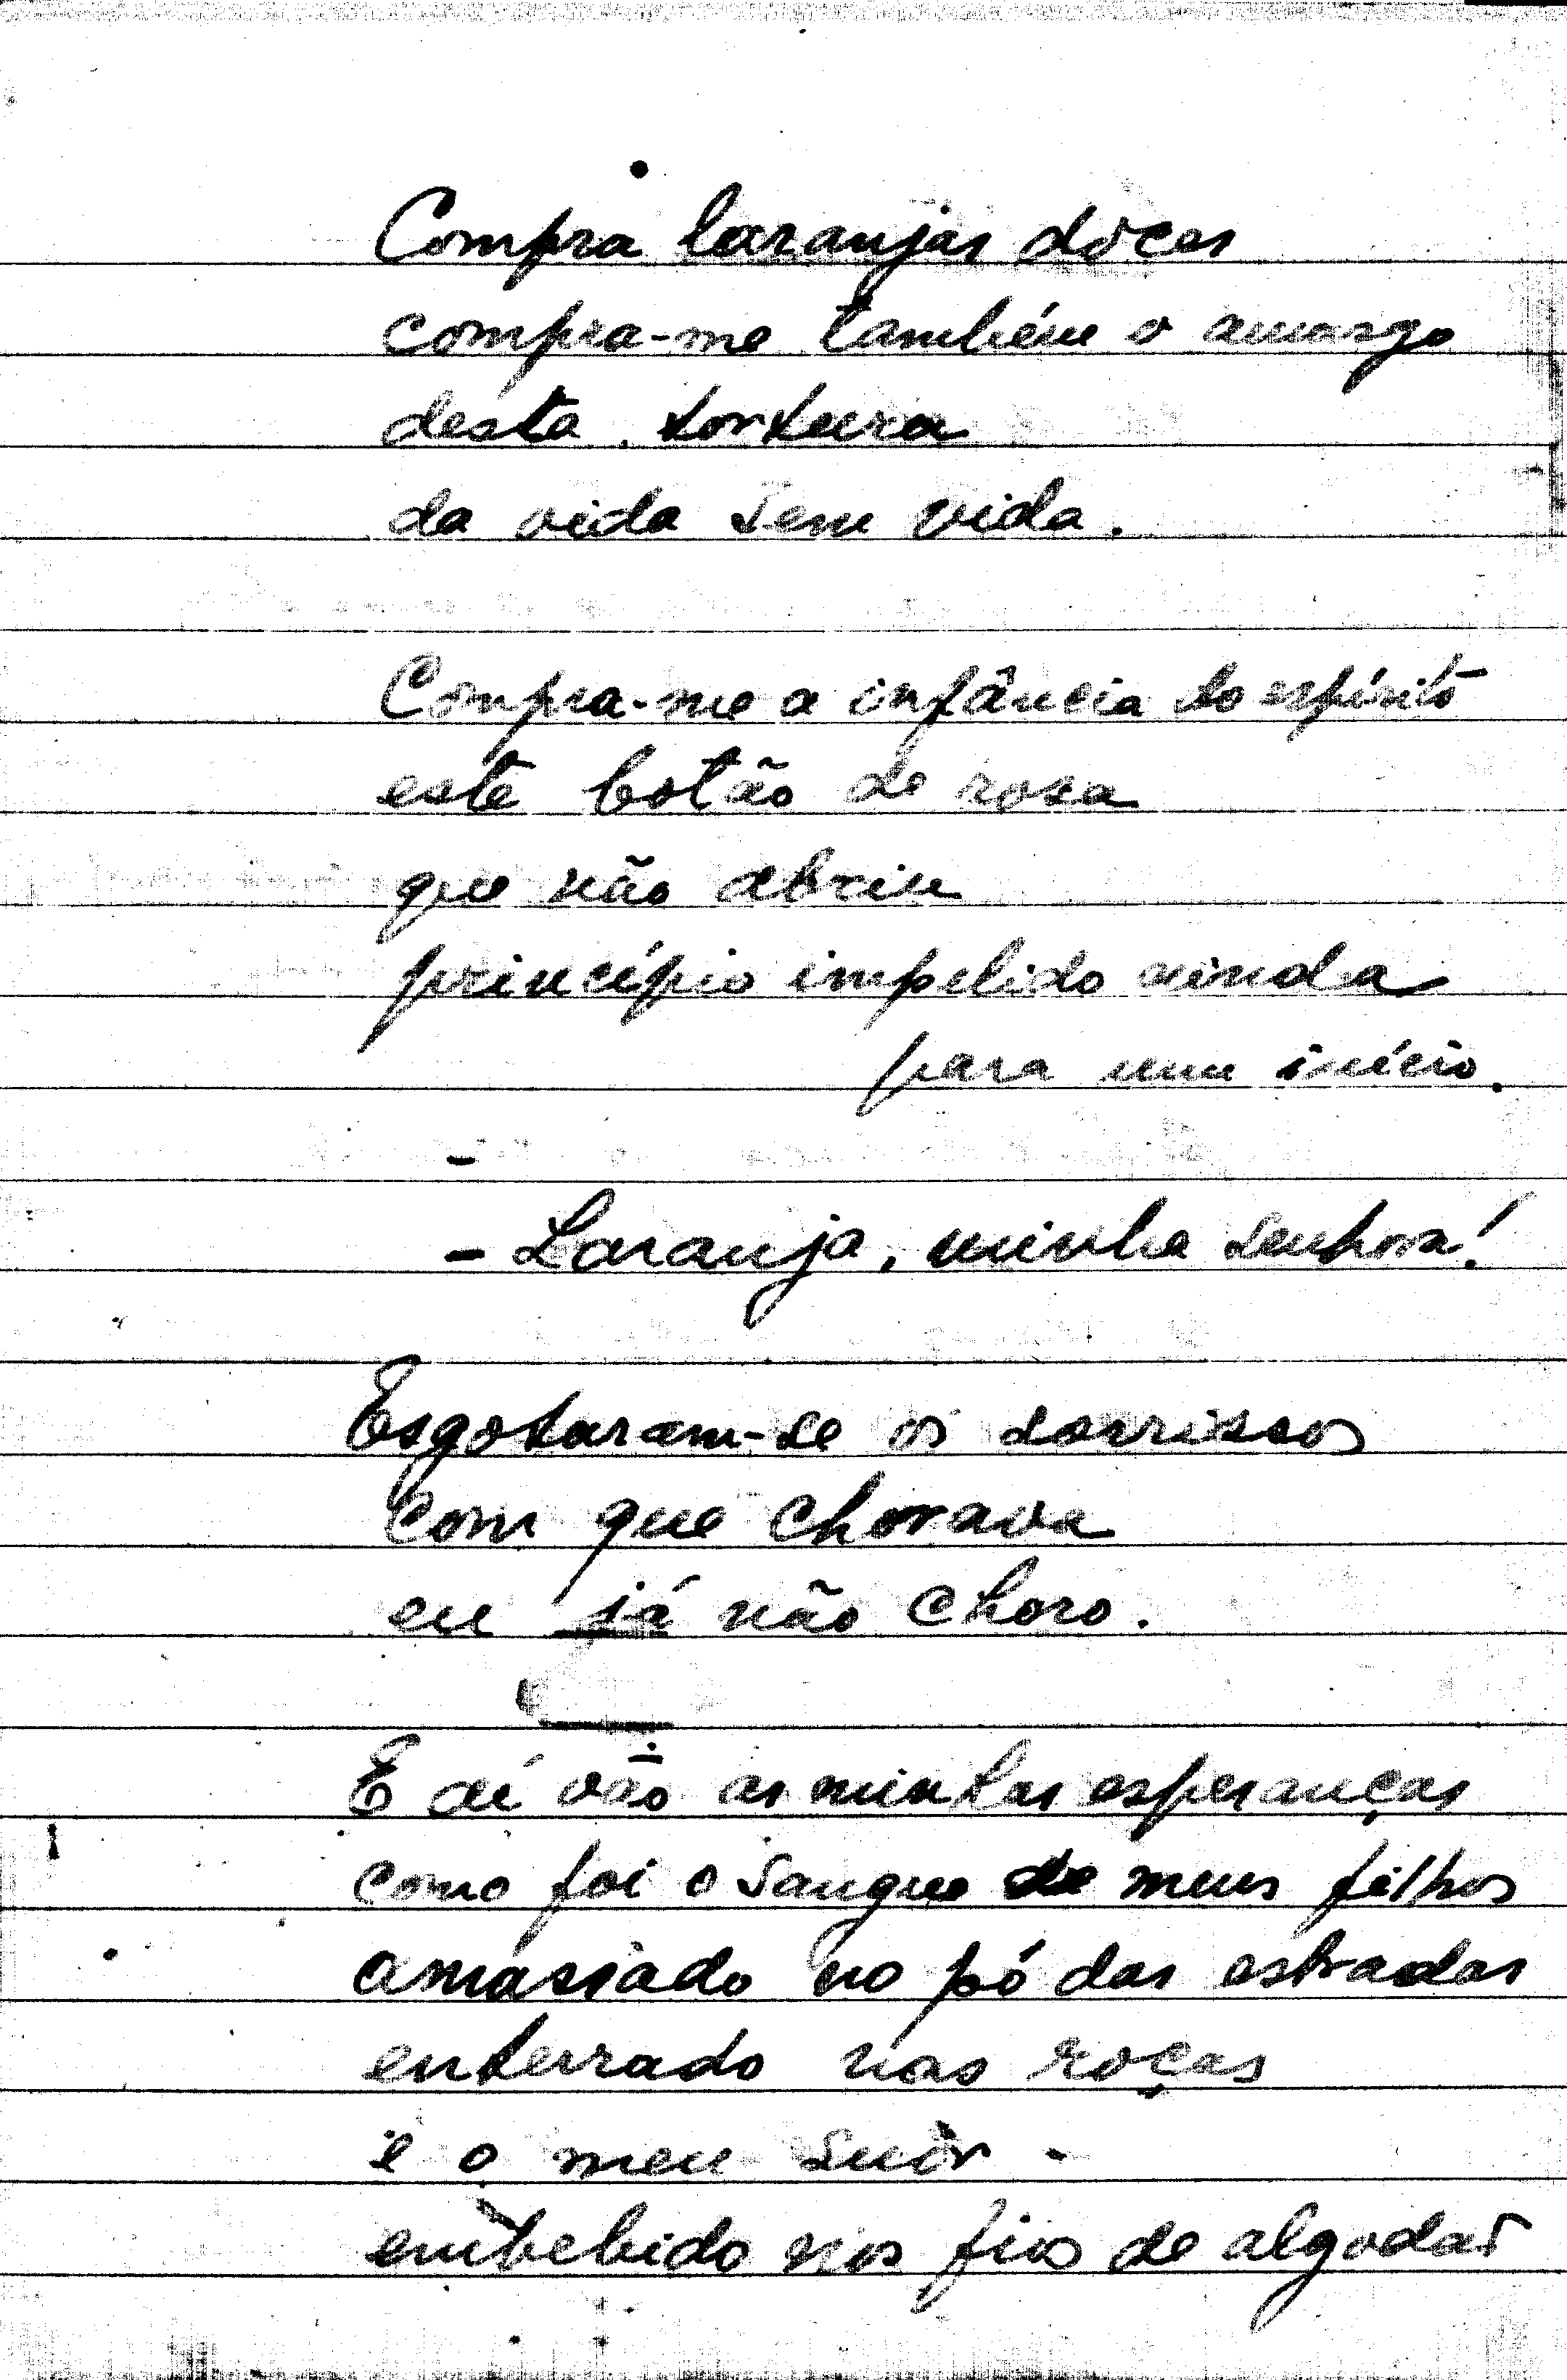 Compra laranjas doces
compra-me também o amargo
desta tortura
da vida sem vida.
Compra-me a infância do espírito
este botão de rosa
que não abriu
princípio impelido ainda
para um início.
- Laranja, minha senhora!
Esgotaram-se os sorrisos
com que chorava
eu já não choro.
E aí vão as minhas esperanças
como foi o sangue de meus filhos
amassado no pó das estradas
enterrado nas roças
e o meu suor
embebido nos fios de algodão